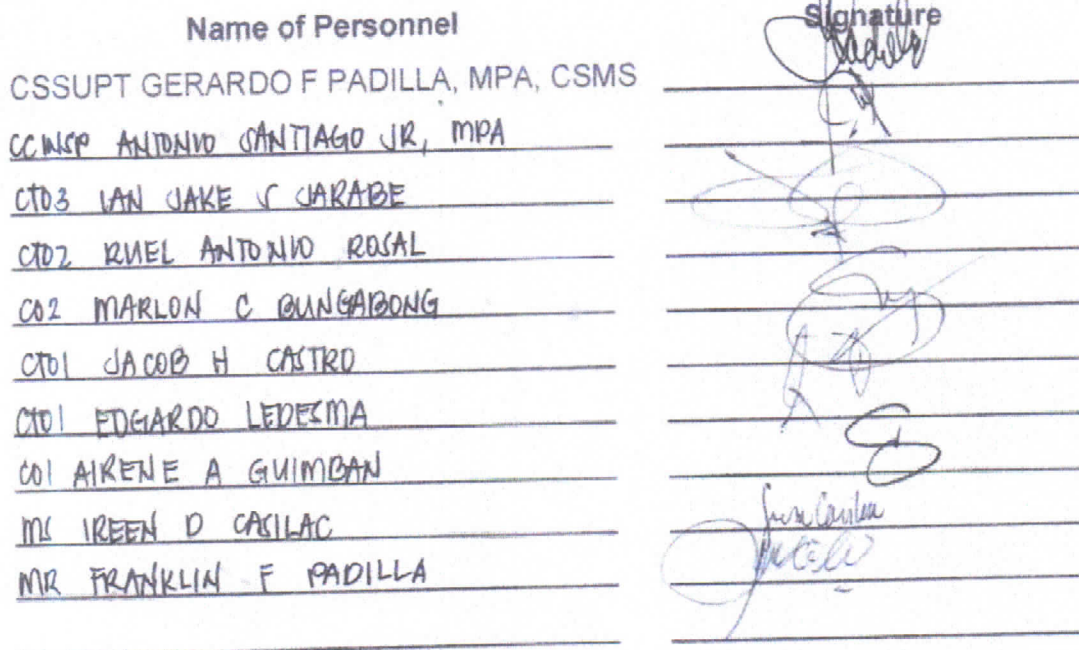 Name of Personnel Signature
CSSUPT GERARDO F PADILLA, MPA, CSMS
CCINSP ANTONIO SANTIAGO JR, MPA
CTO3 IAN JAKE S JARABE
CTO2 RUEL ANTONIO ROSAL
CO2 MARLON C BUNGABONG
CTO1 JACOB H CASTRO
CTO1 EDGARDO LEDESMA
CO1 AIRENE A GUIMBAN
MS IREEN D CASILAC
MR FRANKLIN F PADILLA